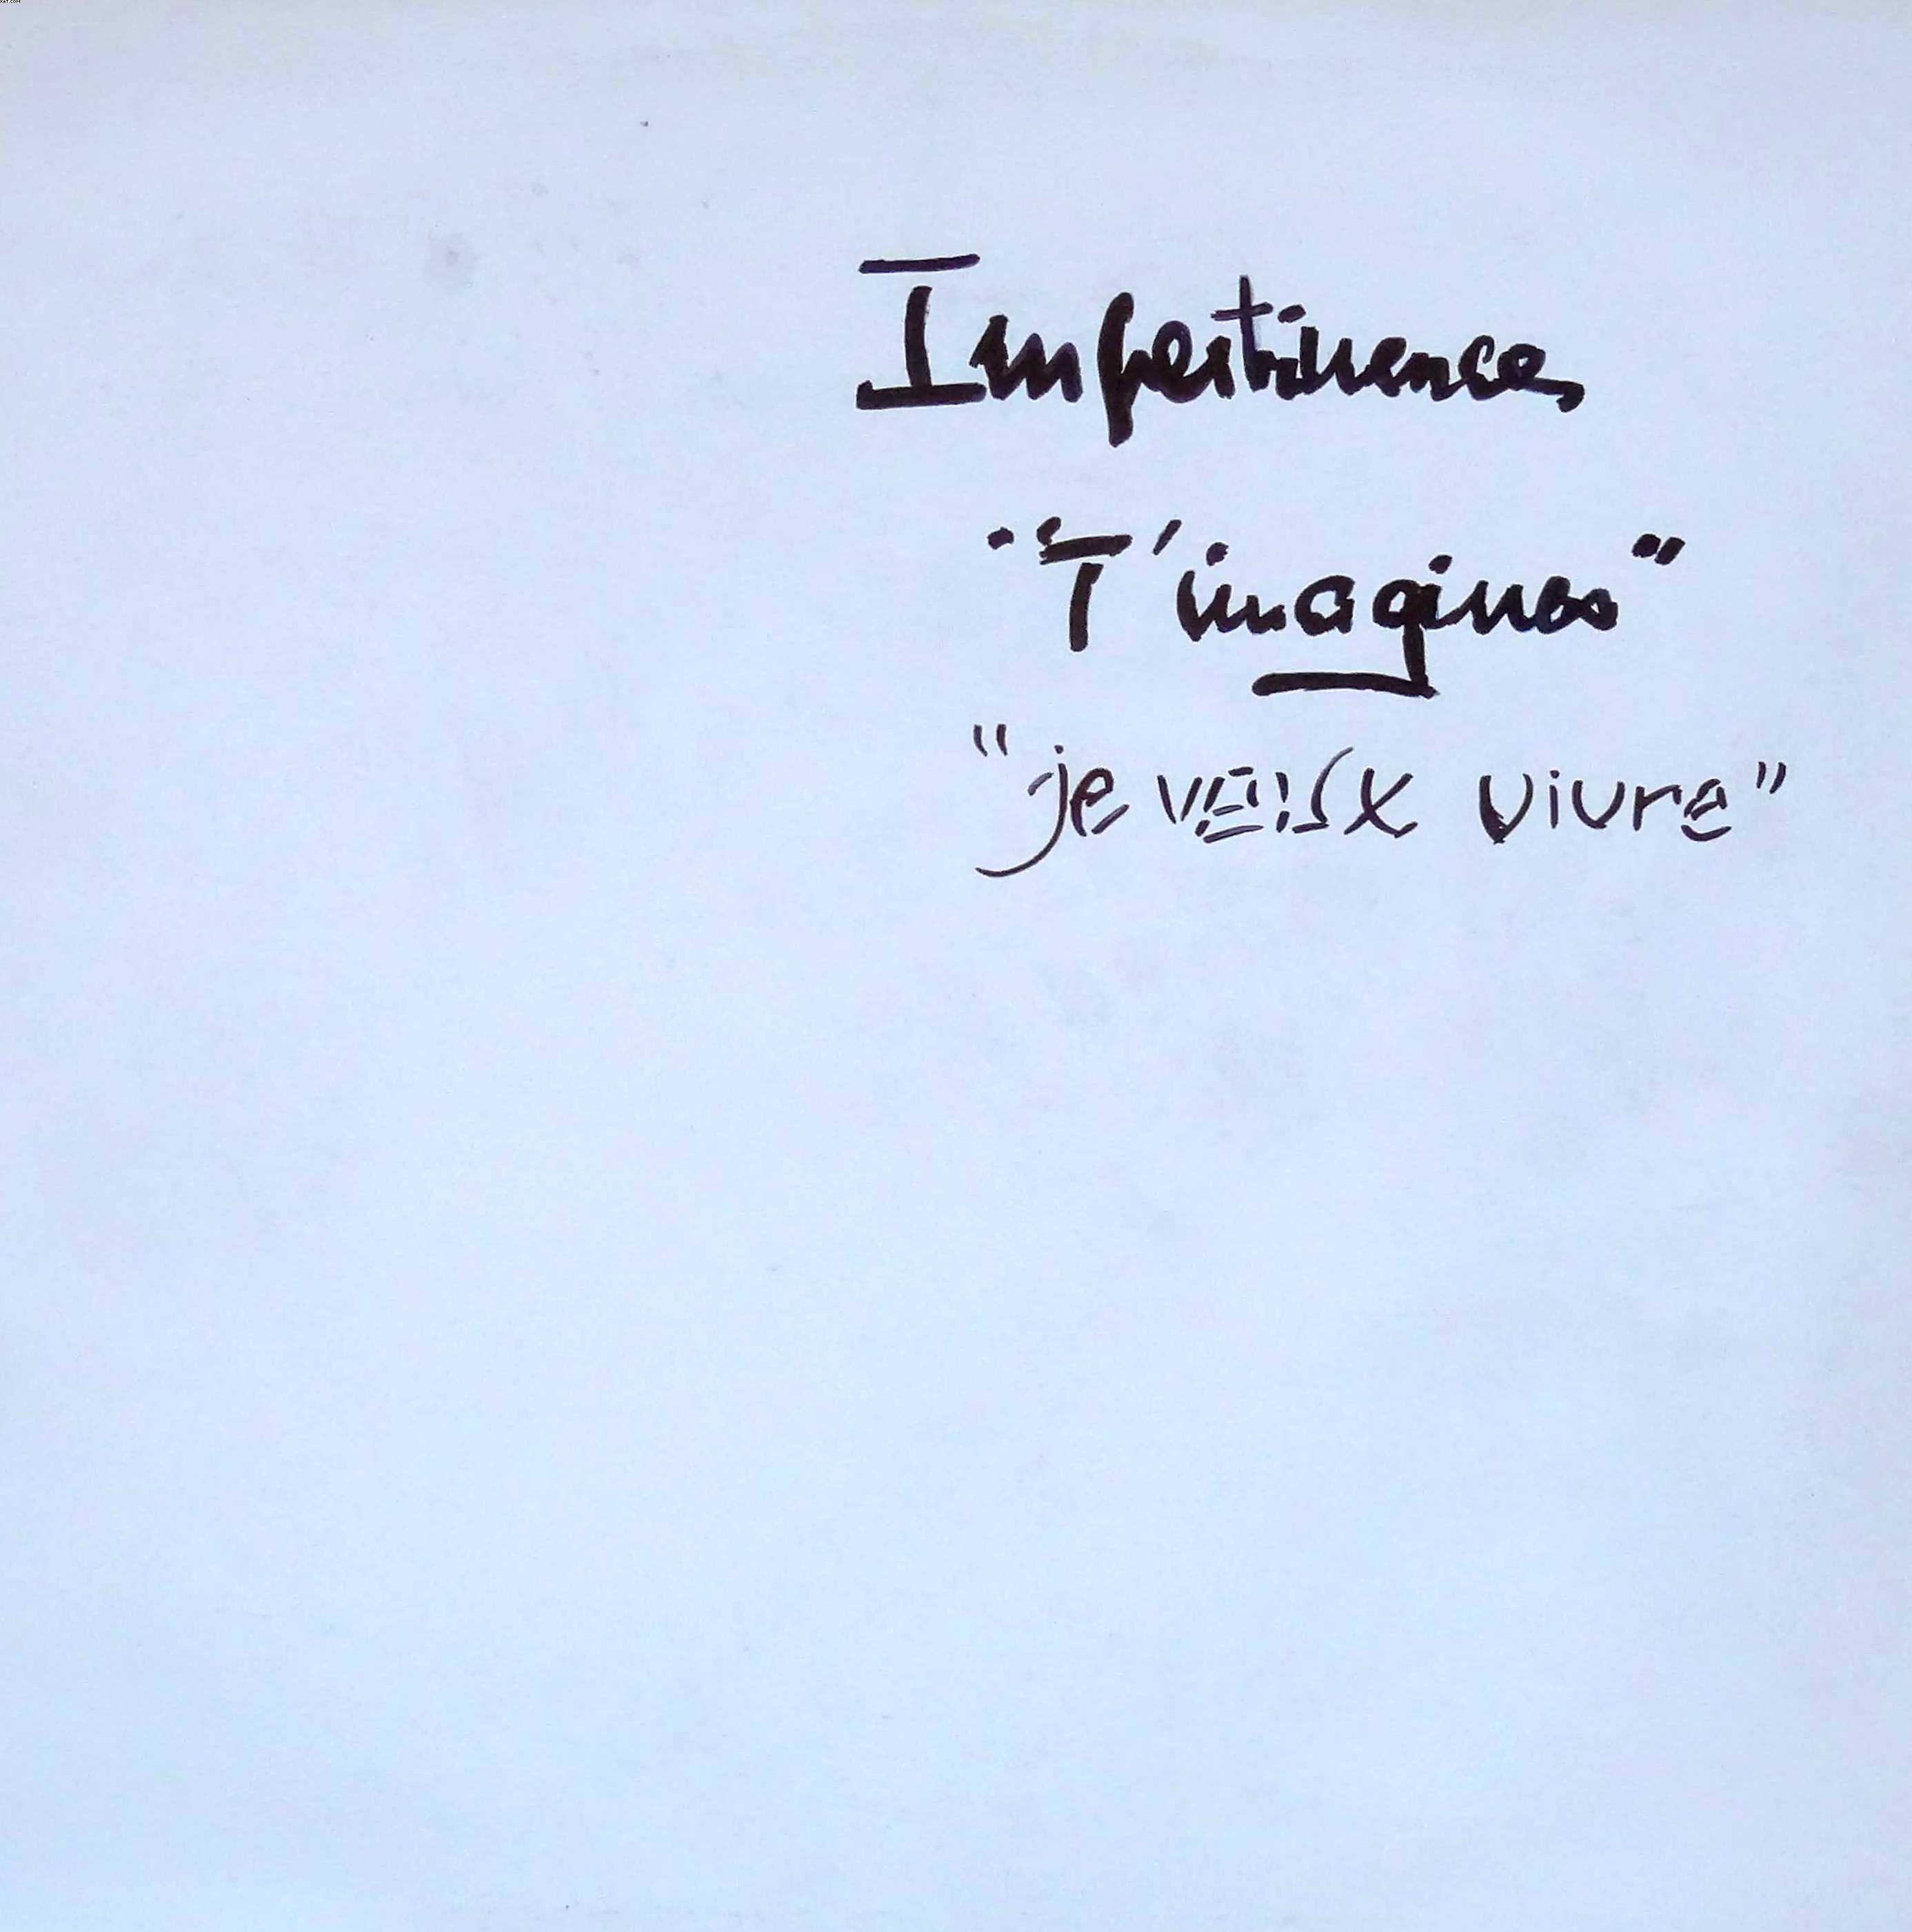 Impertinence
"T'imagines"
"je veux vivre"